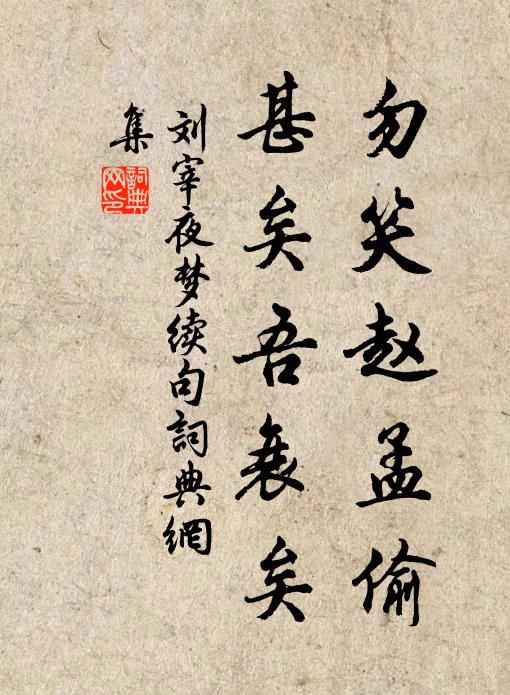 勿笑赵孟偷
甚矣吾衰矣
刘宰夜梦续句詞典網
集
詞典
网印